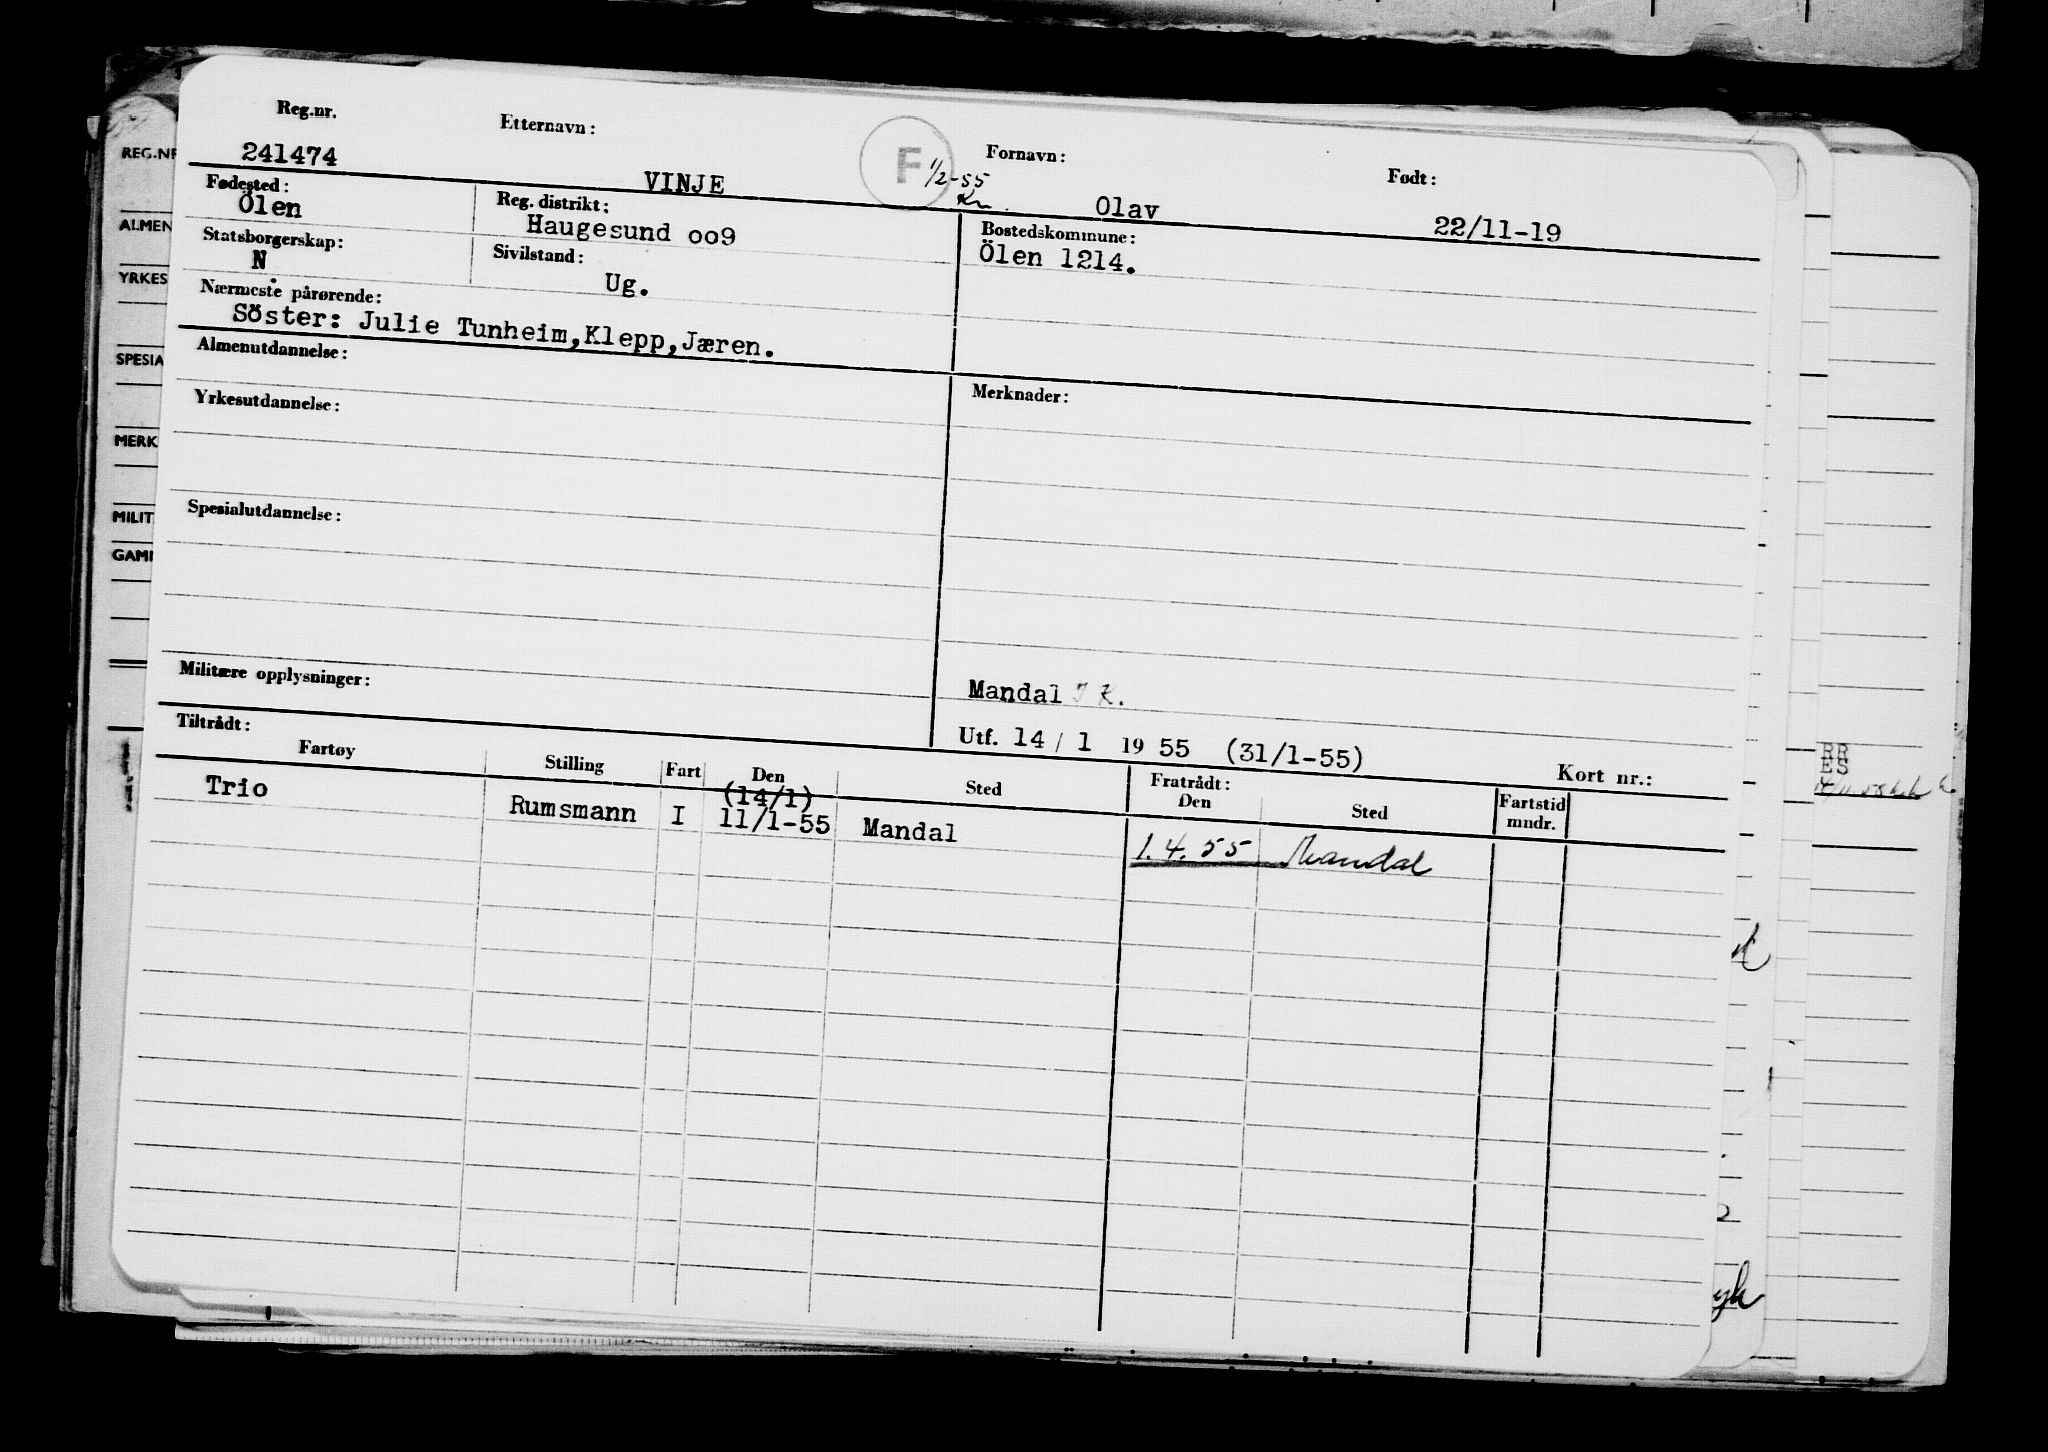 Reg.nr. Etternavn: Fornavn: Født:
241474 VINJE F 1/2-55 Olav 22/11-19
Fødested: Reg. distrikt: Bostedskommune:
Ölen Haugesund oo9 Ölen 1214.
Statsborgerskap: Sivilstand:
N. Ug.
Nærmeste pårørende:
Söster: Julie Tunheim,Klepp,Jæren.
Almenutdannelse:
Merknader:
Yrkesutdannelse:
Spesialutdannelse:
Militære opplysninger:
Mandal
Utf. 14 / 1 19 55 (31/1-55) Kort nr.:
Tiltrådt: Fratrådt:
Fartøy Stilling Fart Den Sted Den Sted Fartstid mndr.
(14/1)
Trio Rumsmann I 11/1-55 Mandal 1.4.55 Mandal
REG.NR
ALMEN
YRKES
SPESIA
MERK
MILIT
RR
ES